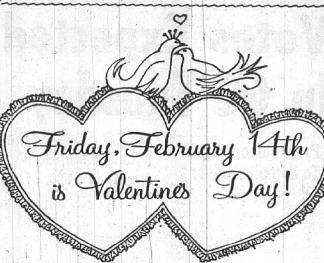 Friday, February 14th
is Valentine's Day!